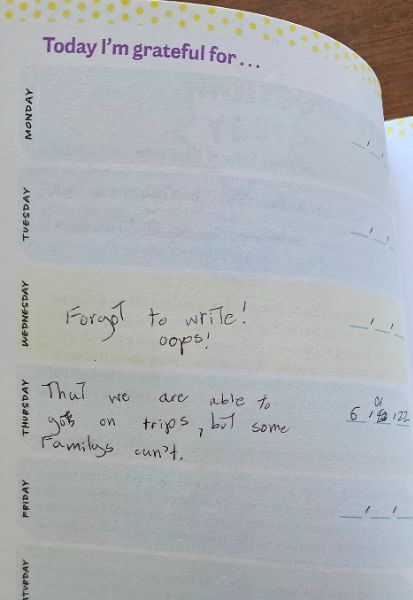 Today I'm grateful for...
MONDAY
TUESDAY
WEDNESDAY
Forgot to write!
oops!
THURSDAY
That we are able to
go on trips, but some
Familys can't.
6 / / 22
FRIDAY
ATURDAY